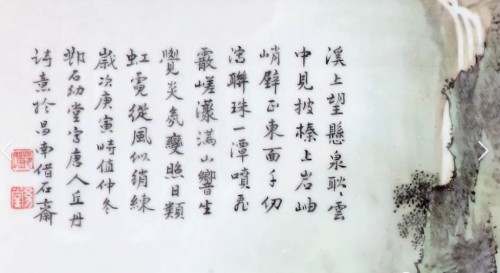 溪上望懸泉耿〻雲
中見披榛上岩岫
峭壁正東面千仞
瀉聯珠一潭噴飛
霰嵯灇滿山響坐
覺炎氛變照日類
虹霓從風似綃練
歲次庚寅時值仲冬
石幼堂寫唐人丘丹
詩意於昌南借石齋